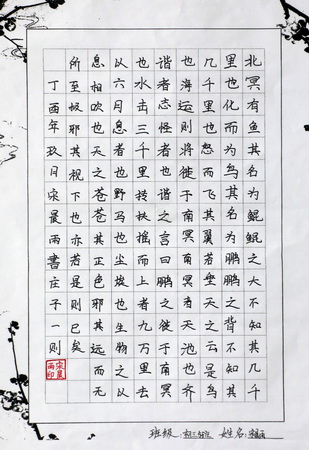 北冥有鱼其名为鲲鲲之大不知其几千
里也化而为鸟其名为鹏鹏之背不知其
几千里也怒而飞其翼若垂天之云是鸟
也海运则将徙于南冥南冥者天池也齐
谐者志怪者也谐之言曰鹏之徙于南冥
也水击三千里抟扶摇而上者九万里去
以六月息者也野马也尘埃也生物之以
息相吹也天之苍苍其正色邪其远而无
所至极邪其视下也亦若是则已矣
丁酉年玖月宋晨雨書庄子一则
宋晨雨印
班级: 姓名: